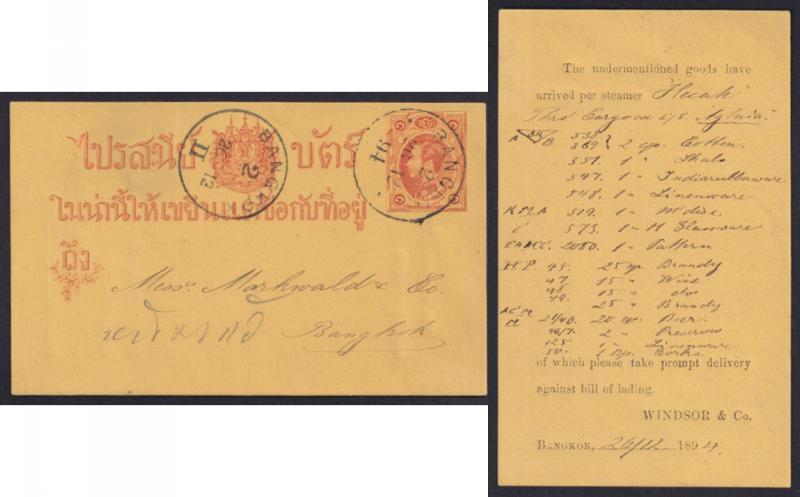 ไปรสนีย บัตร์
ในน่านี้ให้เขียนแต่ชื่อกับที่อยู่
ถึง
BANGKOK
2
12
II
BANGKOK
2
12
94
Messrs Markwald & Co.
Bangkok
The undermentioned goods have
arrived per steamer "Hecate"
Thro Cargo ex S/S Aglaia.
538
A 569 2 cs. Cotton
551. 1 "
547. 1 " Indiarubberware
548. 1 " Linenware
519. 1 "
C 573. 1 " Glassware
2050. 1 " Pattern
H P 45. 25 Brandy
47. 15 " Wine
48. 15 " do
49. 25 " Brandy
20 Beer.
2 " Preserves
125 1 " Linenware
50. 1 Corks
of which please take prompt delivery
against bill of lading.
WINDSOR & Co.
BANGKOK, 26/12 1894.